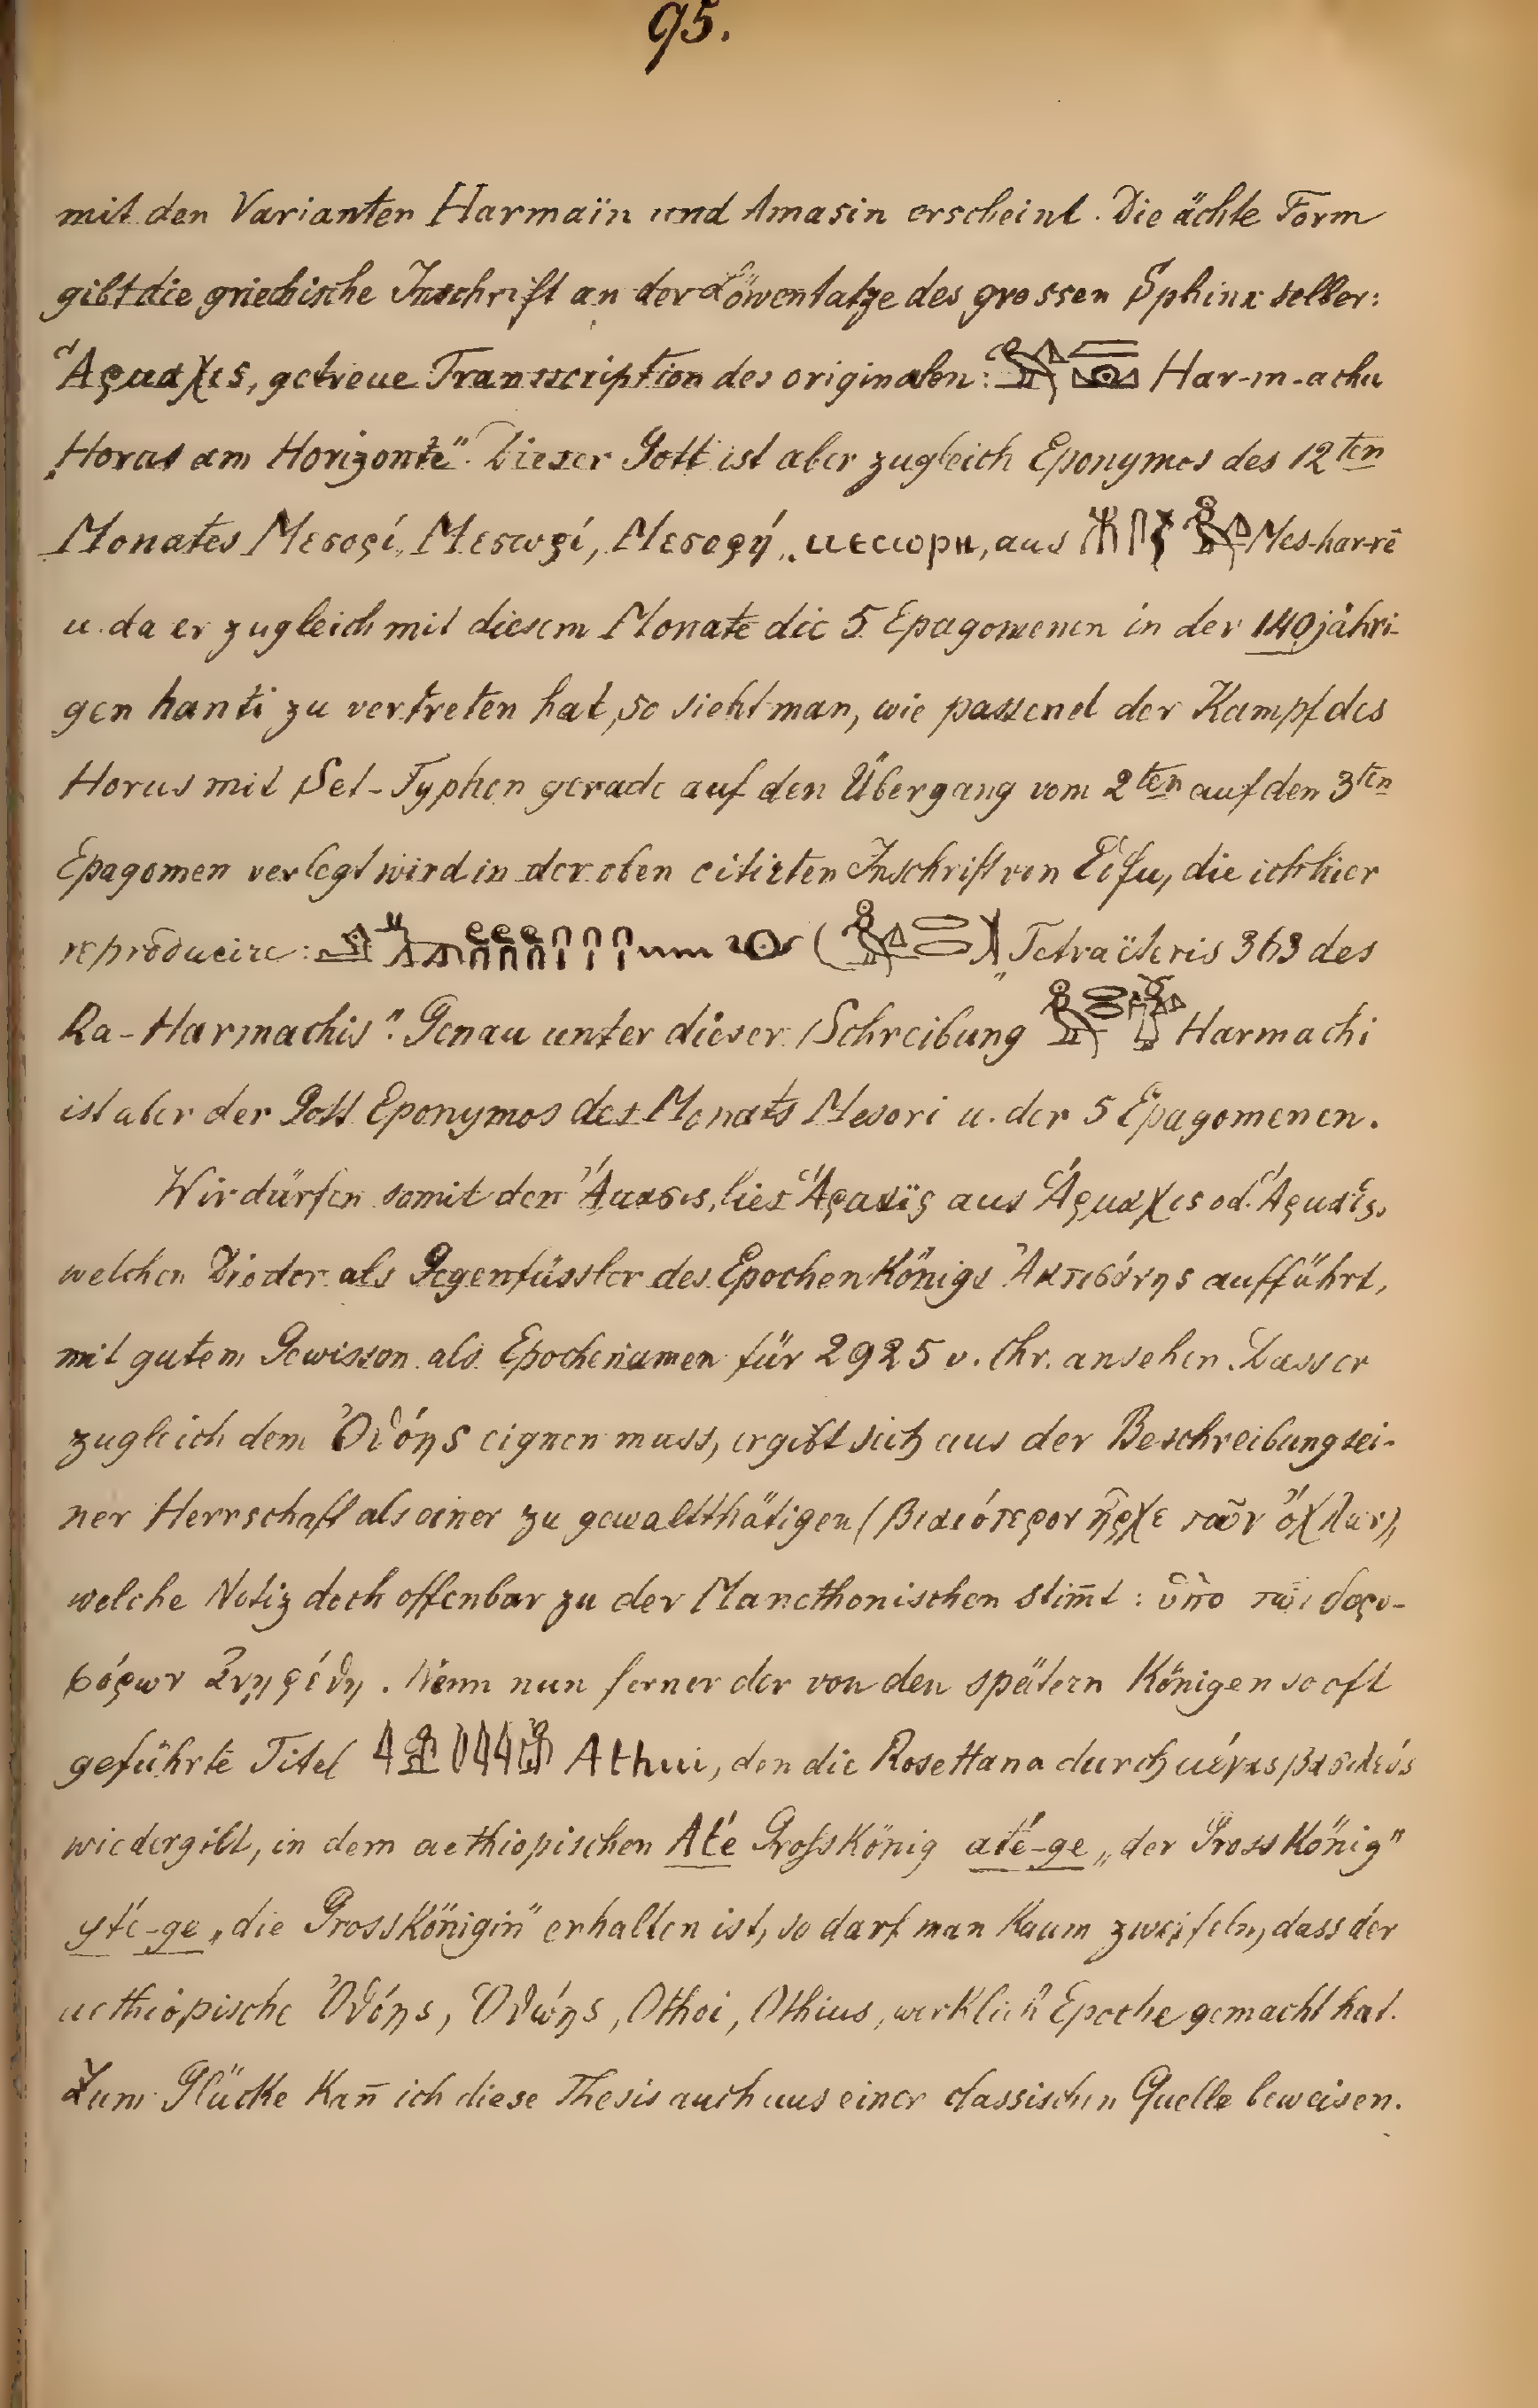 95.
mit den Varianten Harmaïn und Amasin erscheint. Die ächte Form
gibt die griechische Inschrift an der Löwentatze des grossen Sphinx selber:
Ἅρμαχις, getreue Transscription des originalen: Har-m-achu
„Horus am Horizonte". Dieser Gott ist aber zugleich Eponymos des 12ten
Monates Μεσορί, Μεσωρί, Μεσορή, ⲙⲉⲥⲱⲣⲏ, aus Mes-har-rē
u. da er zugleich mit diesem Monate die 5 Epagomenen in der 140jähri-
gen hanti zu vertreten hat, so sieht man, wie passend der Kampf des
Horus mit Set-Typhon gerade auf den Übergang vom 2ten auf den 3ten
Epagomen verlegt wird in der oben citirten Inschrift von Edfu, die ich hier
reproducire: „Tetraëteris 363 des
Ra-Harmachis". Genau unter dieser Schreibung Harmachi
ist aber der Gott Eponymos des Monats Mesori u. der 5 Epagomenen.
Wir dürfen somit den Ἄμασις, lies Ἅρμαϊς aus Ἅρμαχις od. Ἅρμαϊς,
welchen Diodor als Gegenfüssler des Epochenkönigs Ἀκτισάνης aufführt,
mit gutem Gewissen als Epochenamen für 2925 v. Chr. ansehen. Dass er
zugleich dem Ὀθόης eignen muss, ergibt sich aus der Beschreibung sei-
ner Herrschaft als einer zu gewaltthätigen (βιαιότερον ἦρχε τῶν ὄχλων),
welche Notiz doch offenbar zu der Manethonischen stim̄t: ὑπὸ τῶν δορυ-
φόρων ἀνῃρέθη. Wenn nun ferner der von den spätern Königen so oft
geführte Titel Athui, den die Rosettana durch μέγας βασιλεύς
wiedergibt, in dem aethiopischen Até Grosskönig até-ge „der Grosskönig"
yté-ge „die Grosskönigin" erhalten ist, so darf man kaum zweifeln, dass der
aethiopische Ὀθόης, Ὀθώης, Othoi, Othius, wirklich Epoche gemacht hat.
Zum Glücke kan̄ ich diese Thesis auch aus einer classischen Quelle beweisen.